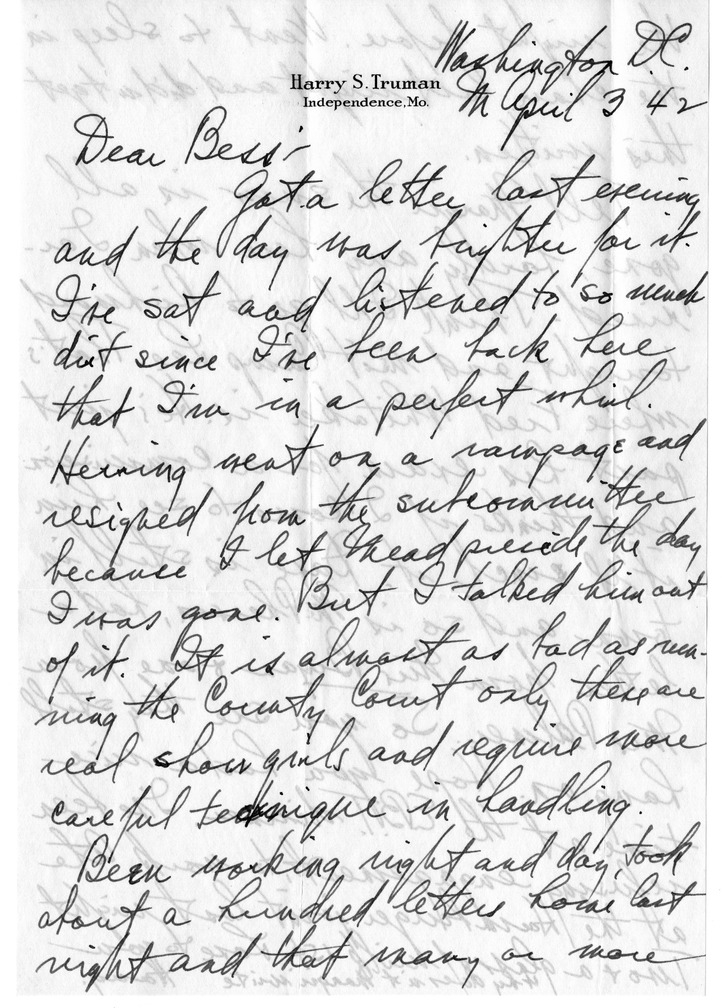 Washington D.C.
Harry S. Truman
Independence, Mo.
M April 3 42
Dear Bess:-
Got a letter last evening
and the day was brighter for it.
I've sat and listened to so much
dirt since I've been back here
that I'm in a perfect whirl.
Herring went on a rampage and
resigned from the subcommittee
because I let Mead preside the day
I was gone. But I talked him out
of it. It is almost as bad as run-
ning the County Court only these are
real show girls and require more
careful technique in handling.
Been working night and day, took
about a hundred letters home last
night and that many or more